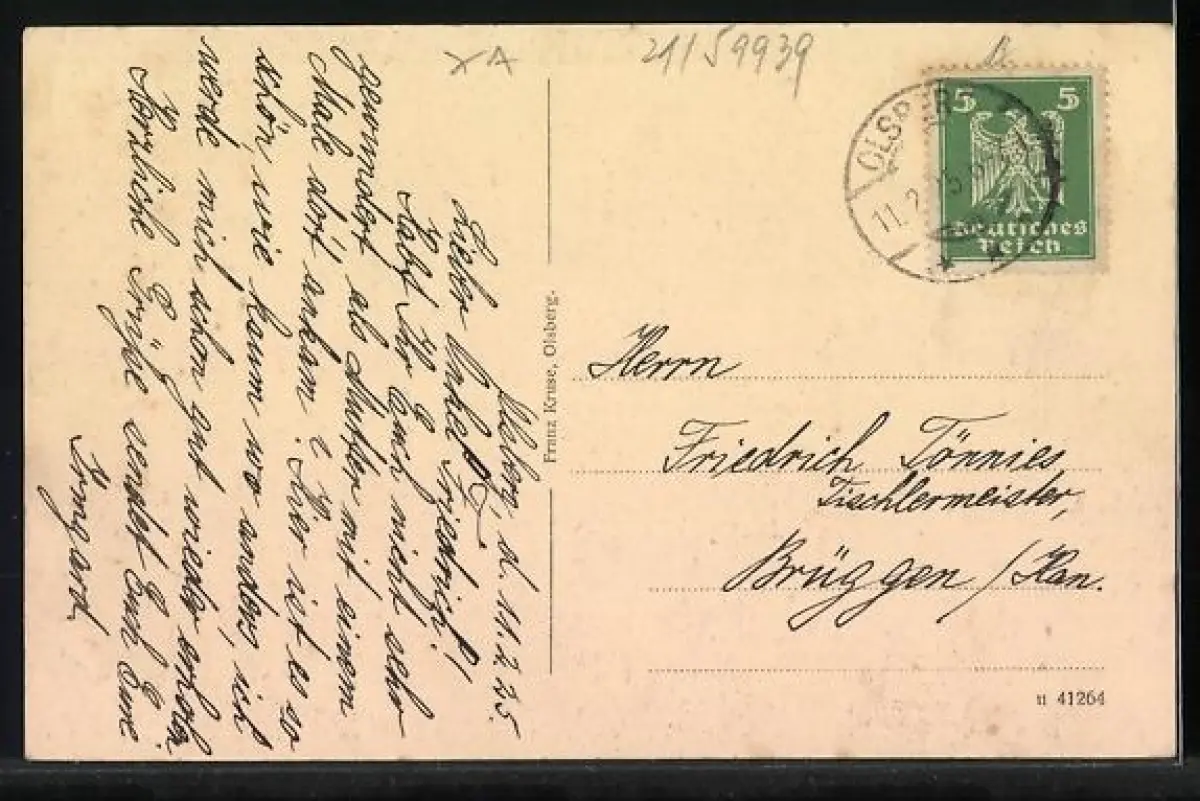 21/59939
5 5
Deutsches
Reich
OLSBERG
11.2.
Olsberg, d. 11.2.25.
Lieber Onkel Friedrich!
Habt Ihr Euch nicht sehr
gewundert als Mutter mit einem
Male dort ankam? Hier ist es so
schön, wie kaum wo anders, ich
werde mich schon gut wieder erholen.
Herzliche Grüße sendet Euch Eure
Irmgard.
Franz Kruse, Olsberg.
Herrn
Friedrich Tönnies
Tischlermeister,
Brüggen /Han.
11 41264